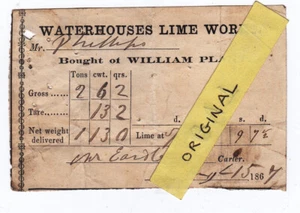 WATERHOUSES LIME WOR
Mr. Phillips
Bought of WILLIAM PLA
Tons cwt. qrs.
Gross 2 6 2
Tare 13 2
d. s. d.
Net weight delivered 1 13 0 Lime at 9 7½
Carter.
15 186
ORIGINAL